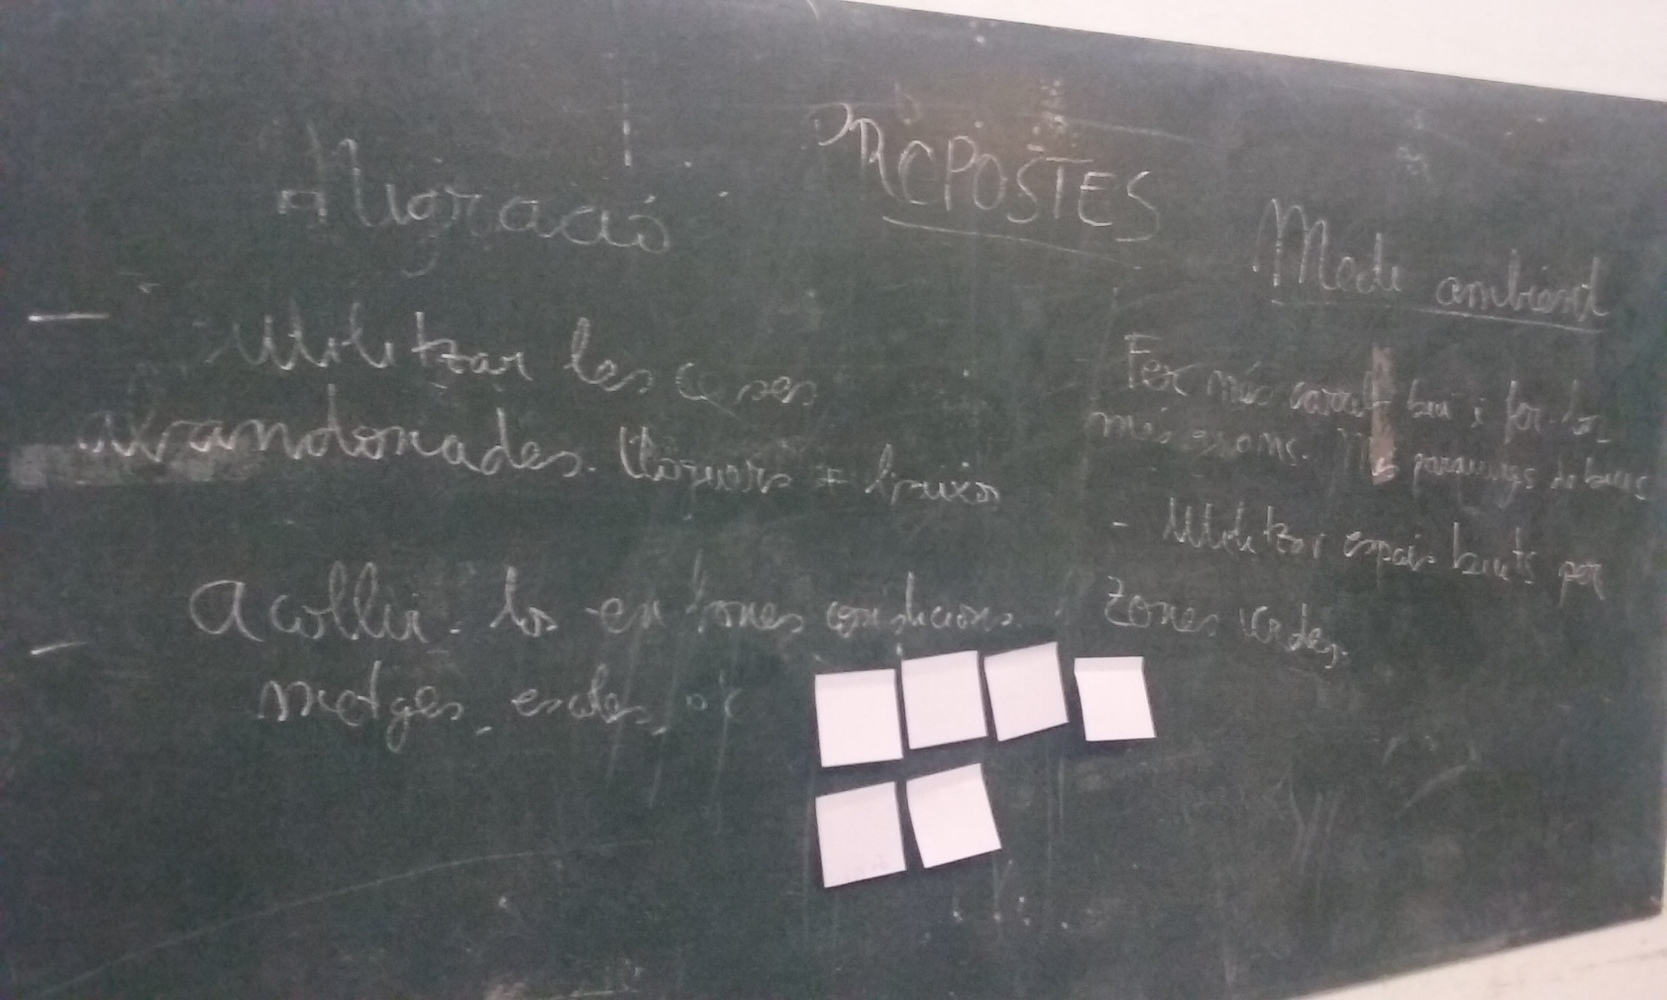 PROPOSTES
Migració
Utilitzar les cases
abandonades. Lloguers + baixos
Acollir-los en bones condicions
metges, escoles,
Medi ambient
Fer més carril bici i fer-los
més grans. Més parquings de bicis
- Utilitzar espais buits per
zones verdes.